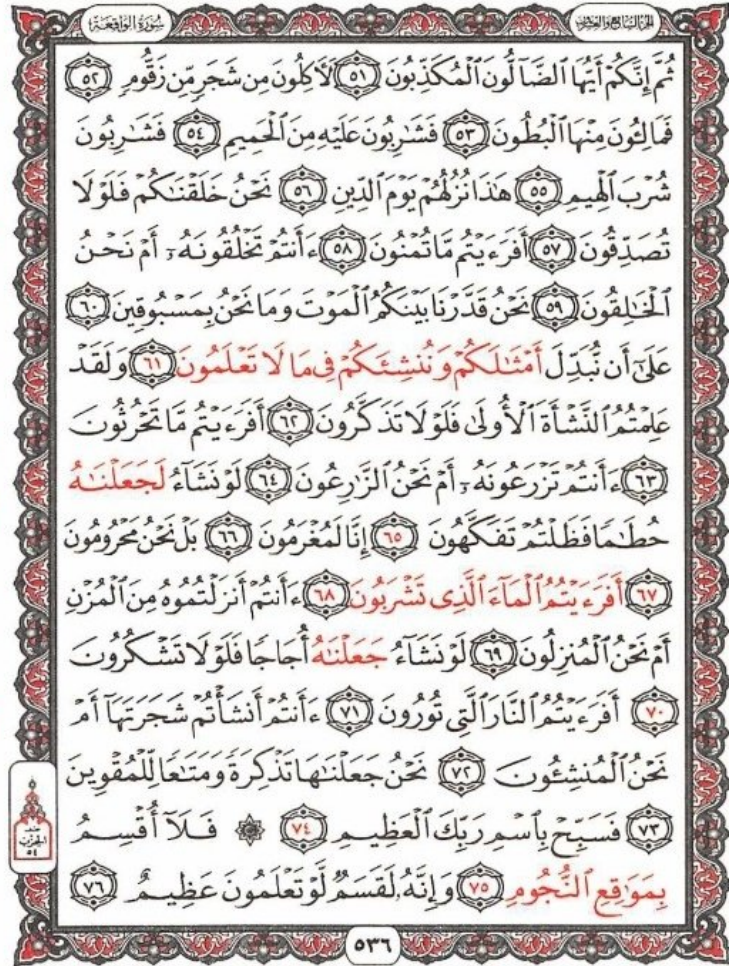 الجزء السابع والعشرون
سورة الواقعة
ثُمَّ إِنَّكُمْ أَيُّهَا ٱلضَّآلُّونَ ٱلْمُكَذِّبُونَ ٥١ لَأَكِلُونَ مِن شَجَرٍ مِّن زَقُّومٍ ٥٢
فَمَالِـُٔونَ مِنْهَا ٱلْبُطُونَ ٥٣ فَشَـٰرِبُونَ عَلَيْهِ مِنَ ٱلْحَمِيمِ ٥٤ فَشَـٰرِبُونَ
شُرْبَ ٱلْهِيمِ ٥٥ هَـٰذَا نُزُلُهُمْ يَوْمَ ٱلدِّينِ ٥٦ نَحْنُ خَلَقْنَـٰكُمْ فَلَوْلَا
تُصَدِّقُونَ ٥٧ أَفَرَءَيْتُم مَّا تُمْنُونَ ٥٨ ءَأَنتُمْ تَخْلُقُونَهُۥٓ أَمْ نَحْنُ
ٱلْخَـٰلِقُونَ ٥٩ نَحْنُ قَدَّرْنَا بَيْنَكُمُ ٱلْمَوْتَ وَمَا نَحْنُ بِمَسْبُوقِينَ ٦٠
عَلَىٰٓ أَن نُّبَدِّلَ أَمْثَـٰلَكُمْ وَنُنشِئَكُمْ فِى مَا لَا تَعْلَمُونَ ٦١ وَلَقَدْ
عَلِمْتُمُ ٱلنَّشْأَةَ ٱلْأُولَىٰ فَلَوْلَا تَذَكَّرُونَ ٦٢ أَفَرَءَيْتُم مَّا تَحْرُثُونَ
٦٣ ءَأَنتُمْ تَزْرَعُونَهُۥٓ أَمْ نَحْنُ ٱلزَّٰرِعُونَ ٦٤ لَوْ نَشَآءُ لَجَعَلْنَـٰهُ
حُطَـٰمًا فَظَلْتُمْ تَفَكَّهُونَ ٦٥ إِنَّا لَمُغْرَمُونَ ٦٦ بَلْ نَحْنُ مَحْرُومُونَ
٦٧ أَفَرَءَيْتُمُ ٱلْمَآءَ ٱلَّذِى تَشْرَبُونَ ٦٨ ءَأَنتُمْ أَنزَلْتُمُوهُ مِنَ ٱلْمُزْنِ
أَمْ نَحْنُ ٱلْمُنزِلُونَ ٦٩ لَوْ نَشَآءُ جَعَلْنَـٰهُ أُجَاجًا فَلَوْلَا تَشْكُرُونَ
٧٠ أَفَرَءَيْتُمُ ٱلنَّارَ ٱلَّتِى تُورُونَ ٧١ ءَأَنتُمْ أَنشَأْتُمْ شَجَرَتَهَآ أَمْ
نَحْنُ ٱلْمُنشِـُٔونَ ٧٢ نَحْنُ جَعَلْنَـٰهَا تَذْكِرَةً وَمَتَـٰعًا لِّلْمُقْوِينَ
٧٣ فَسَبِّحْ بِٱسْمِ رَبِّكَ ٱلْعَظِيمِ ٧٤ ۞ فَلَآ أُقْسِمُ
بِمَوَٰقِعِ ٱلنُّجُومِ ٧٥ وَإِنَّهُۥ لَقَسَمٌ لَّوْ تَعْلَمُونَ عَظِيمٌ ٧٦
الحزب
٥٤
٥٣٦